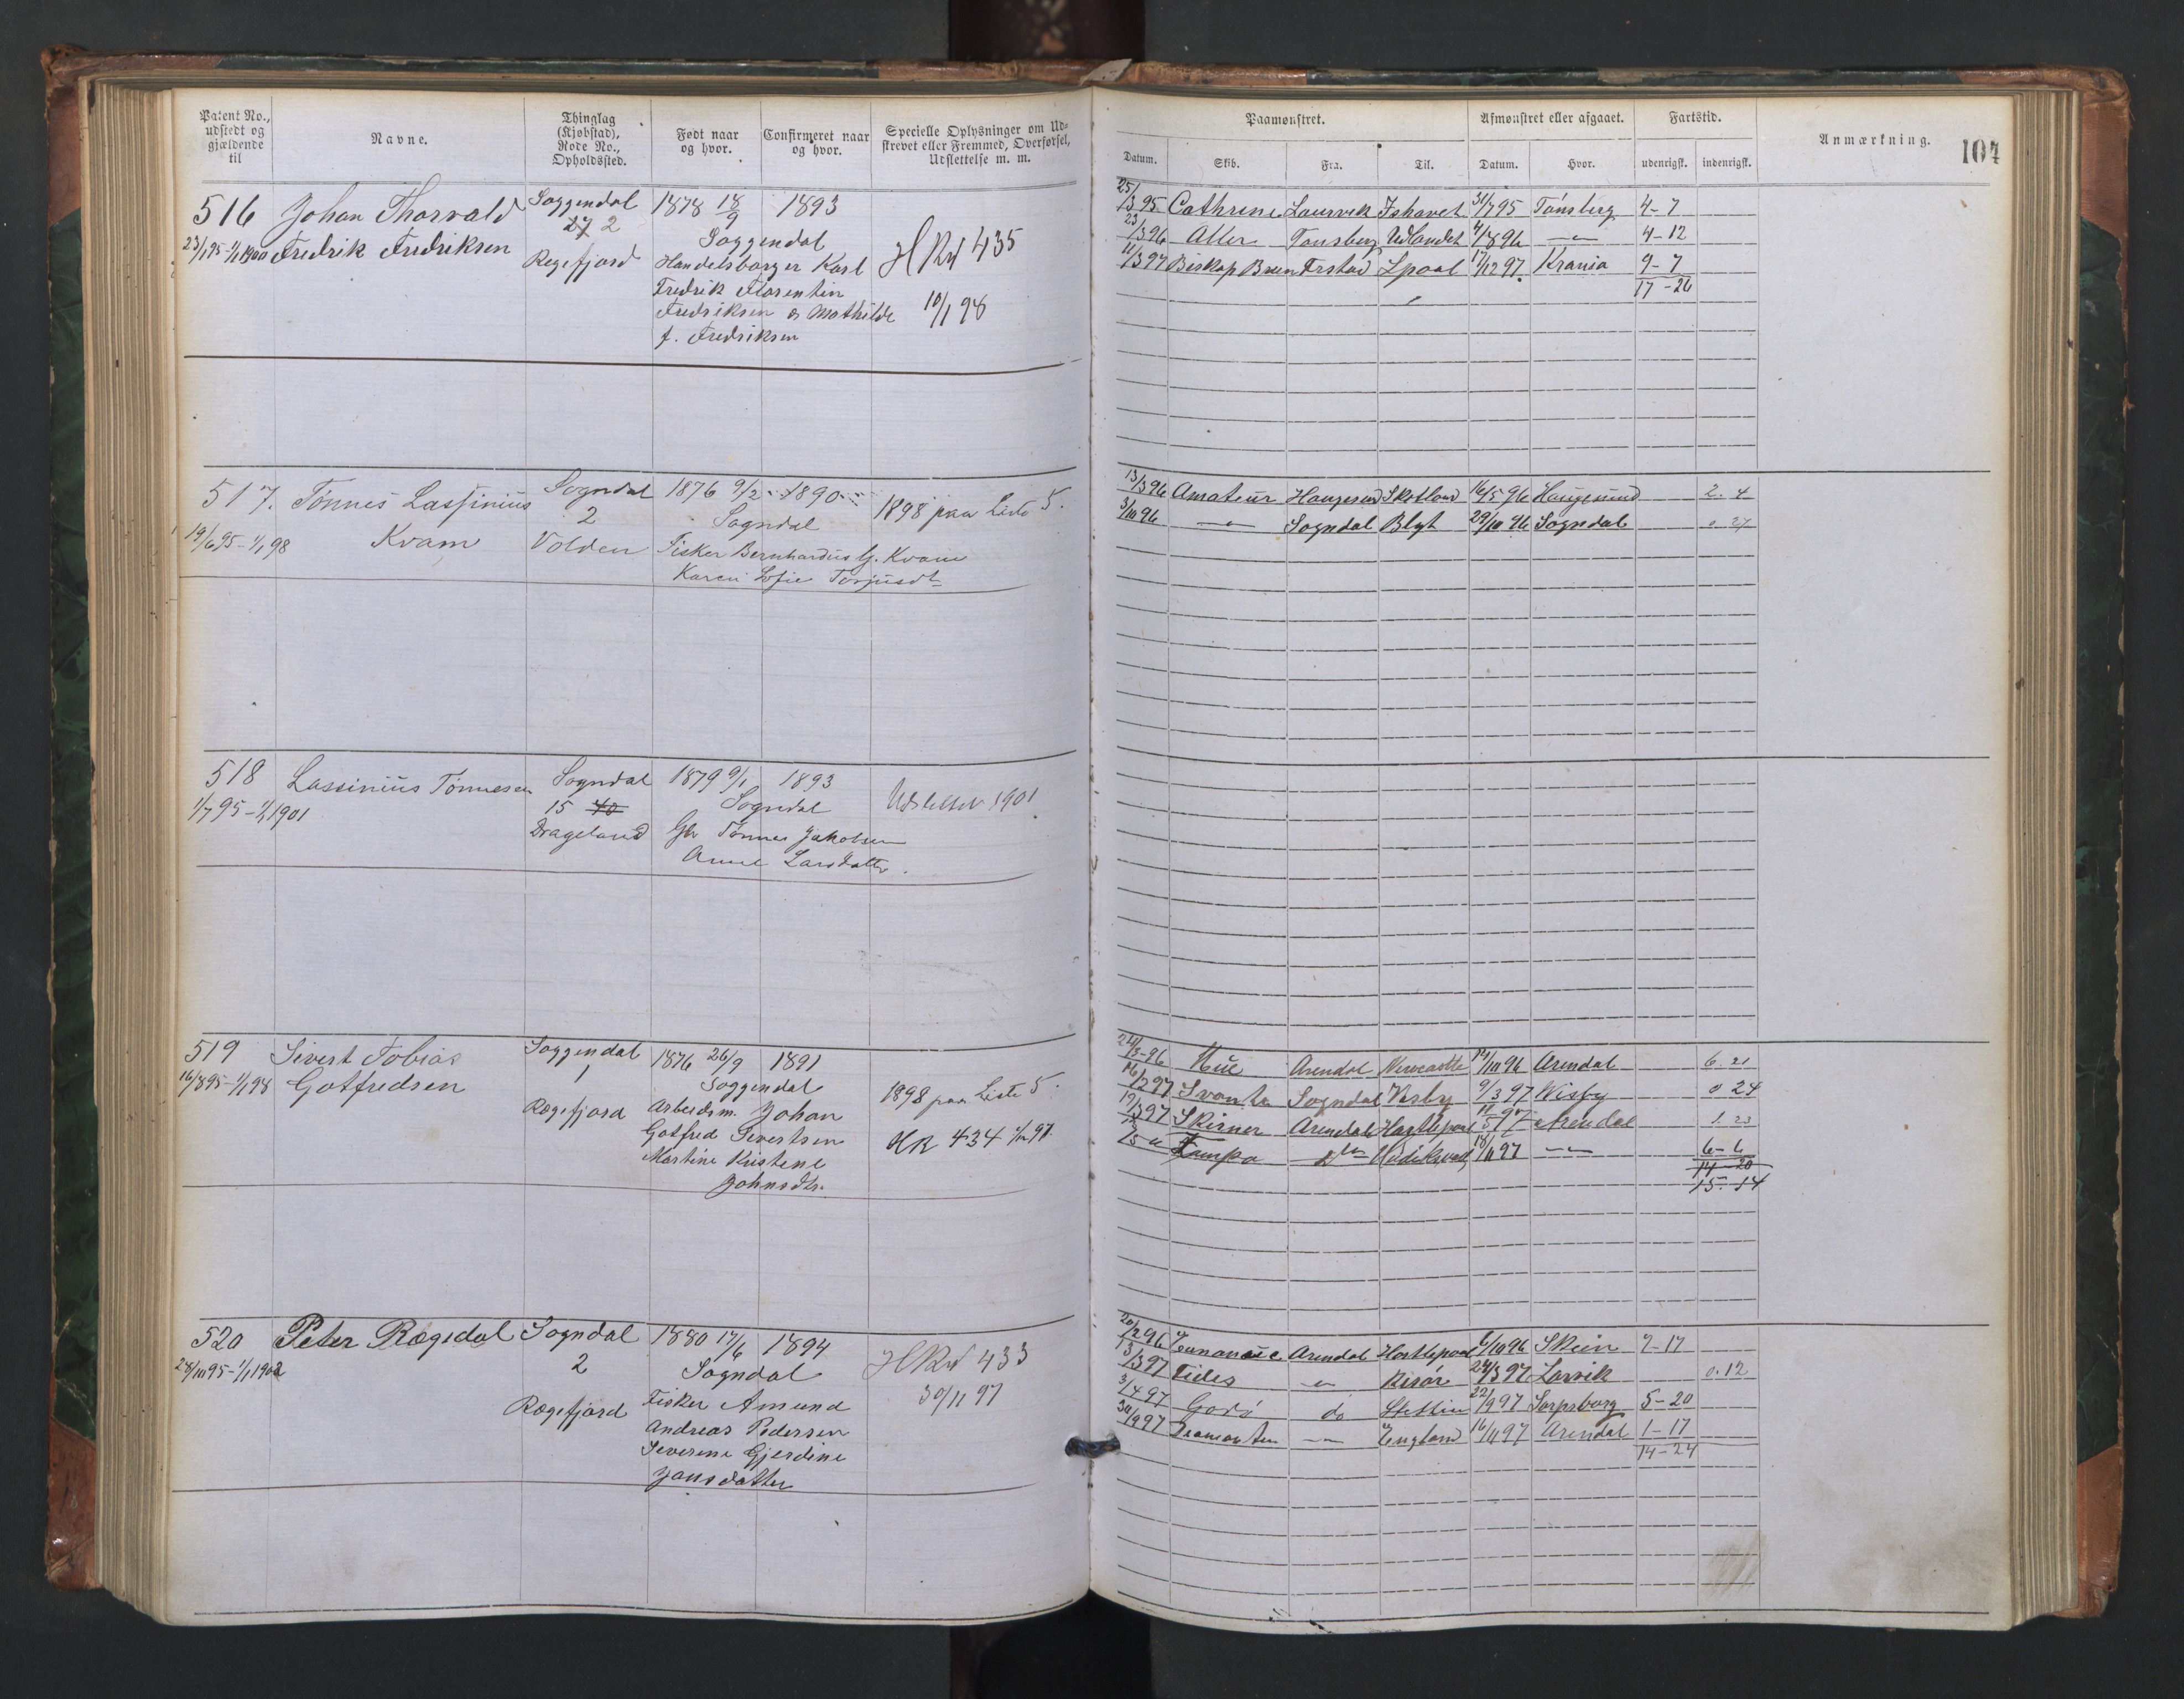 Patent No., udstedt og gjældende til
Navne.
Thinglag (Kjøbstad), Rode No., Opholdssted.
Født naar og hvor.
Confirmeret naar og hvor.
Specielle Oplysninger om Udskrevet eller Fremmed, Overførsel, Udslettelse m. m.
Paamønstret.
Datum. Skib. Fra. Til.
Afmønstret eller afgaaet.
Datum. Hvor.
Fartstid.
udenrigsk. indenrigsk.
Anmærkning.
104
516 Johan Thorvald Soggendal 1878 18/9 1893
27 2 Soggendal
Fredrik Fredriksen Regefjord Handelsborger Karl
Fredrik Florentin
Fredriksen og Mathilde
f. Fredriksen
435
10/1 98
25/3 95 Cathrine Laurvik Ishavet 31/7 95 Tønsberg 4-7
23/3 96 Aller Tønsberg Udlandet 4/8 96 -"- 4-12
11/3 97 Biskop Brun Frstad Lpool 17/12 97 Krania 9-7
17-26
517. Tønnes Lassinius Sogndal 1876 9/2 1890
2 Sogndal
19/6 95-1/1 98 Kvam Volden Fisker Bernhardus G. Kvam
Karen Sofie Torjusdt
1898 paa Liste 5.
13/3 96 Amateur Haugesund Skotland 16/5 96 Haugesund 2. 4
3/10 96 -"- Sogndal Blyt 29/10 96 Sogndal 0. 27
518 Lassinius Tønnesen Sogndal 1879 9/1 1893
1/7 95-1/1 1901 15 40 Sogndal
Drageland Gbr Tønnes Jakobsen
Anne Larsdatter.
Udslettet 1901
519 Sivert Tobias Soggendal 1876 26/9 1891
16/8 95-1/1 98 Gotfredsen 1 Soggendal
Rægefjord Arbeidsm. Johan
Gotfred Sivertsen
Martine Kristene
Johnsdtr.
1898 paa Liste 5.
434
Arendal Newcastle 14/10 96 Arendal 6. 21
16/2 97 Svanta Sogndal Visby 9/3 97 Wisby 0 24
19/3 97 Skirner Arendal Hartlepool 11/5 97 Arendal 1. 23
Tampa 18/11 97 -"- 6-6
14-20
15. 14
520 Peter Rægedal Sogndal 1880 17/6 1894
28/10 95-1/1 1902 2 Sogndal
Rægefjord Fisker Amund
Andreas Pedersen
Severine Gjerdine
Jansdatter
433
30/11 97
20/2 96 Arendal Hartlepool 6/10 96 Skien 7-17
13/3 97 Fides -"- Risør 24/3 97 Larvik 0. 12
3/4 97 do Stettin 22/9 97 Sarpsborg 5-20
30/9 97 -"- England 16/11 97 Arendal 1-17
14-24